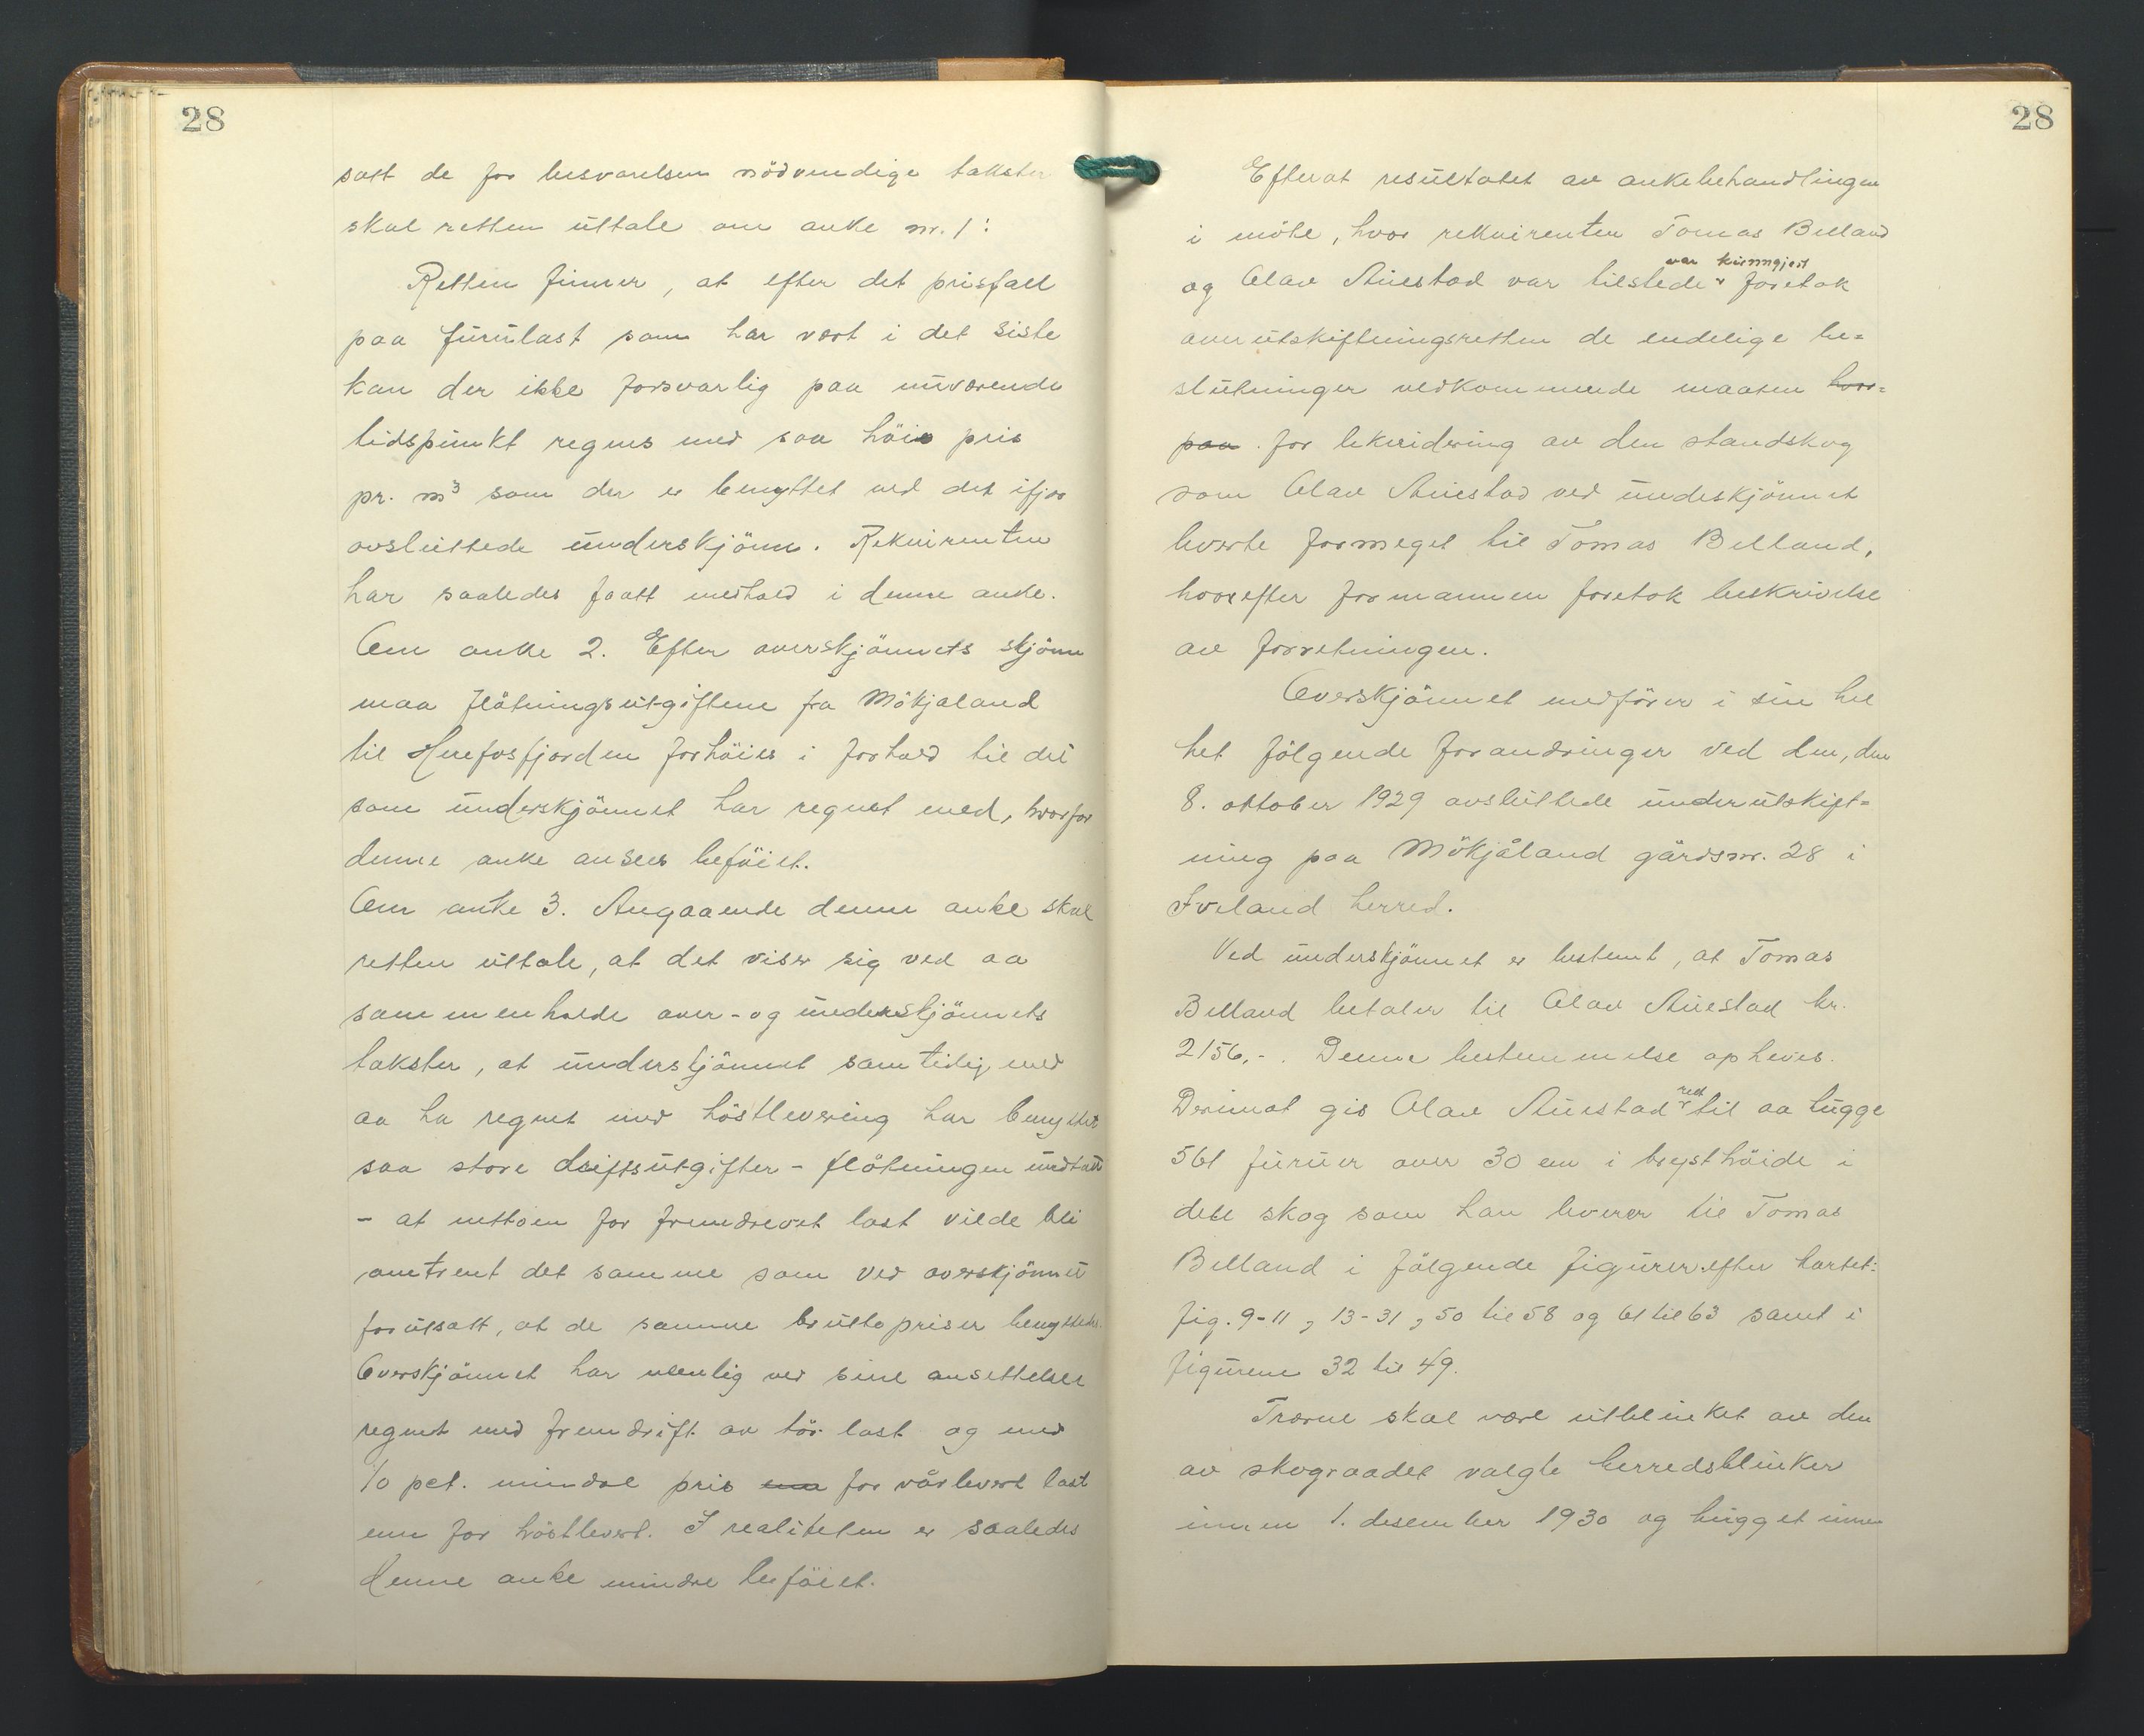 28
satt de for besvarelsen nödvendige takster
skal retten uttale om anke nr. 1:
Retten finner, at efter det prisfall
paa furulast som har vært i det siste
kan der ikke forsvarlig paa nuværende
tidspunkt regnes med saa höie pris
pr. m³ som der er benyttet ved det ifjor
avsluttede underskjönn. Rekvirenten
har saaledes faatt medhold i denne anke.
Om anke 2. Efter overskjönnets skjönn
maa flötningsutgiftene fra Mökjaland
til Herefosfjorden forhöies i forhold til det
som underskjönnet har regnet med, hvorfor
denne anke ansees beföiet.
Om anke 3. Angaaende denne anke skal
retten uttale, at det viser sig ved aa
sammenholde over- og underskjönnets
takster, at underskjönnet samtidig med
aa ha regnet med höstlevering har benyttet
saa store driftsutgifter - flötningen undtatt
- at nettoen for fremdrevet last vilde bli
omtrent det samme som ved overskjönnet
forutsatt, at de samme bruttopriser benyttedes.
Overskjönnet har nemlig ved sine ansettelser
regnet med fremdrift av tör last og med
10 pct. mindre pris enn for vårlevert last
enn for höstlevert. I realiteten er saaledes
denne anke mindre beföiet.
28
Efterat resultatet av ankebehandlingen
i möte, hvor rekvirenten Tomas Belland
var kunngjort
og Olav Austad var tilstede foretok
overutskiftningsretten de endelige be=
slutninger vedkommende maaten hvor=
paa for likvidering av den standskog
som Olav Austad ved underskjönnet
leverte formeget til Tomas Belland,
hvorefter formannen foretok beskrivelse
av forretningen.
Overskjönnet medförer i sin hel
het fölgende forandringer ved den, den
8. oktober 1929 avsluttede underutskift=
ning paa Mökjåland gårdsnr. 28 i
Iveland herred.
Ved underskjönnet er bestemt, at Tomas
Belland betaler til Olav Austad kr.
2156,-. Denne bestemmelse opheves.
rett
Derimot gis Olav Austad til aa hugge
561 furuer over 30 cm i brysthöide i
den skog som han leverer til Tomas
Belland i fölgende figurer efter kartet:
fig. 9-11, 13-31, 50 til 58 og 61 til 63 samt i
figurene 32 til 49.
Trærne skal være utblinket av den
av skograadet valgte herredsblinker
innen 1. desember 1930 og hugget innen